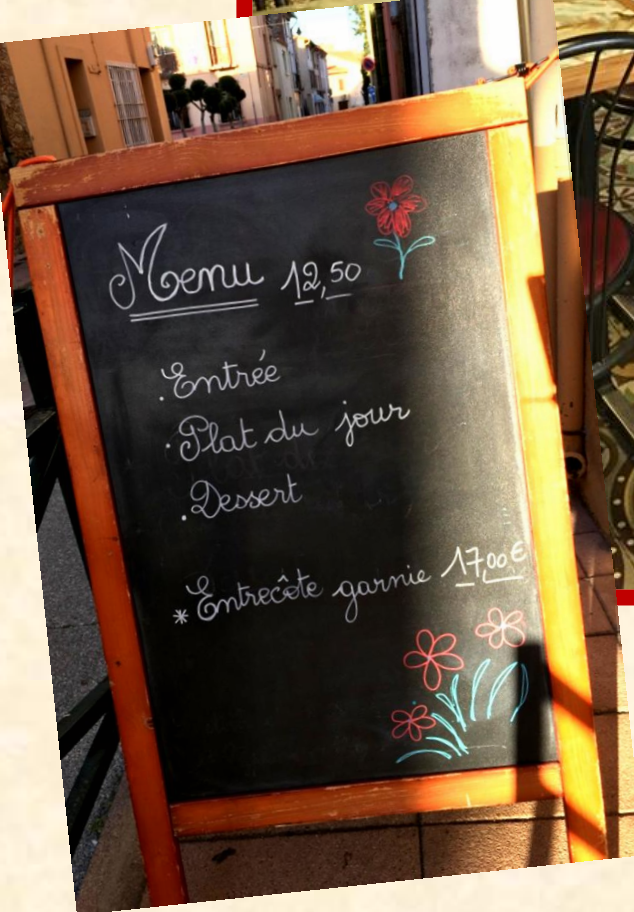 Menu 12,50
.Entrée
.Plat du jour
.Dessert
*Entrecôte garnie 17,00€